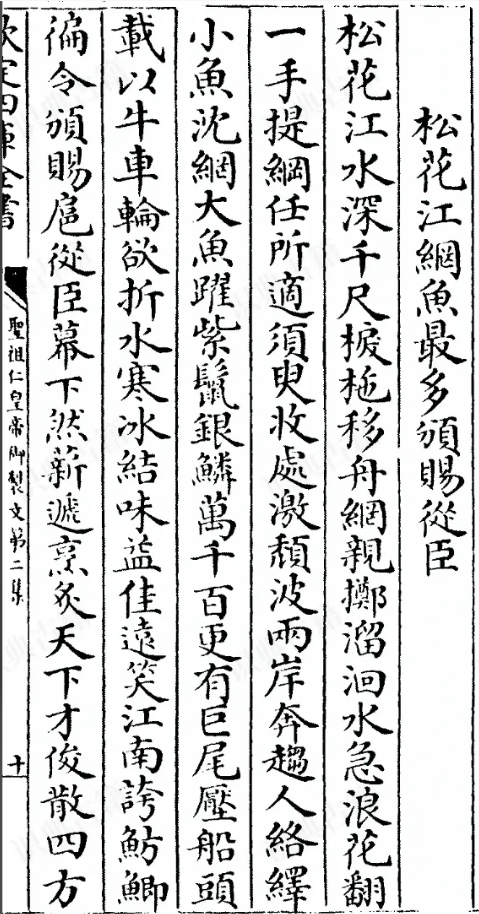 松花江網魚最多頒賜從臣
松花江水深千尺捩柂移舟網親擲溜洄水急浪花翻
一手提綱任所適須臾收處激頽波兩岸奔趨人絡繹
小魚沈網大魚躍紫鬛銀鱗萬千百更有巨尾壓船頭
載以牛車輪欲折水寒冰結味益佳遠笑江南誇魴鯽
徧令頒賜扈從臣幕下然薪遞烹炙天下才俊散四方
欽定四庫全書
聖祖仁皇帝御製文第二集
十